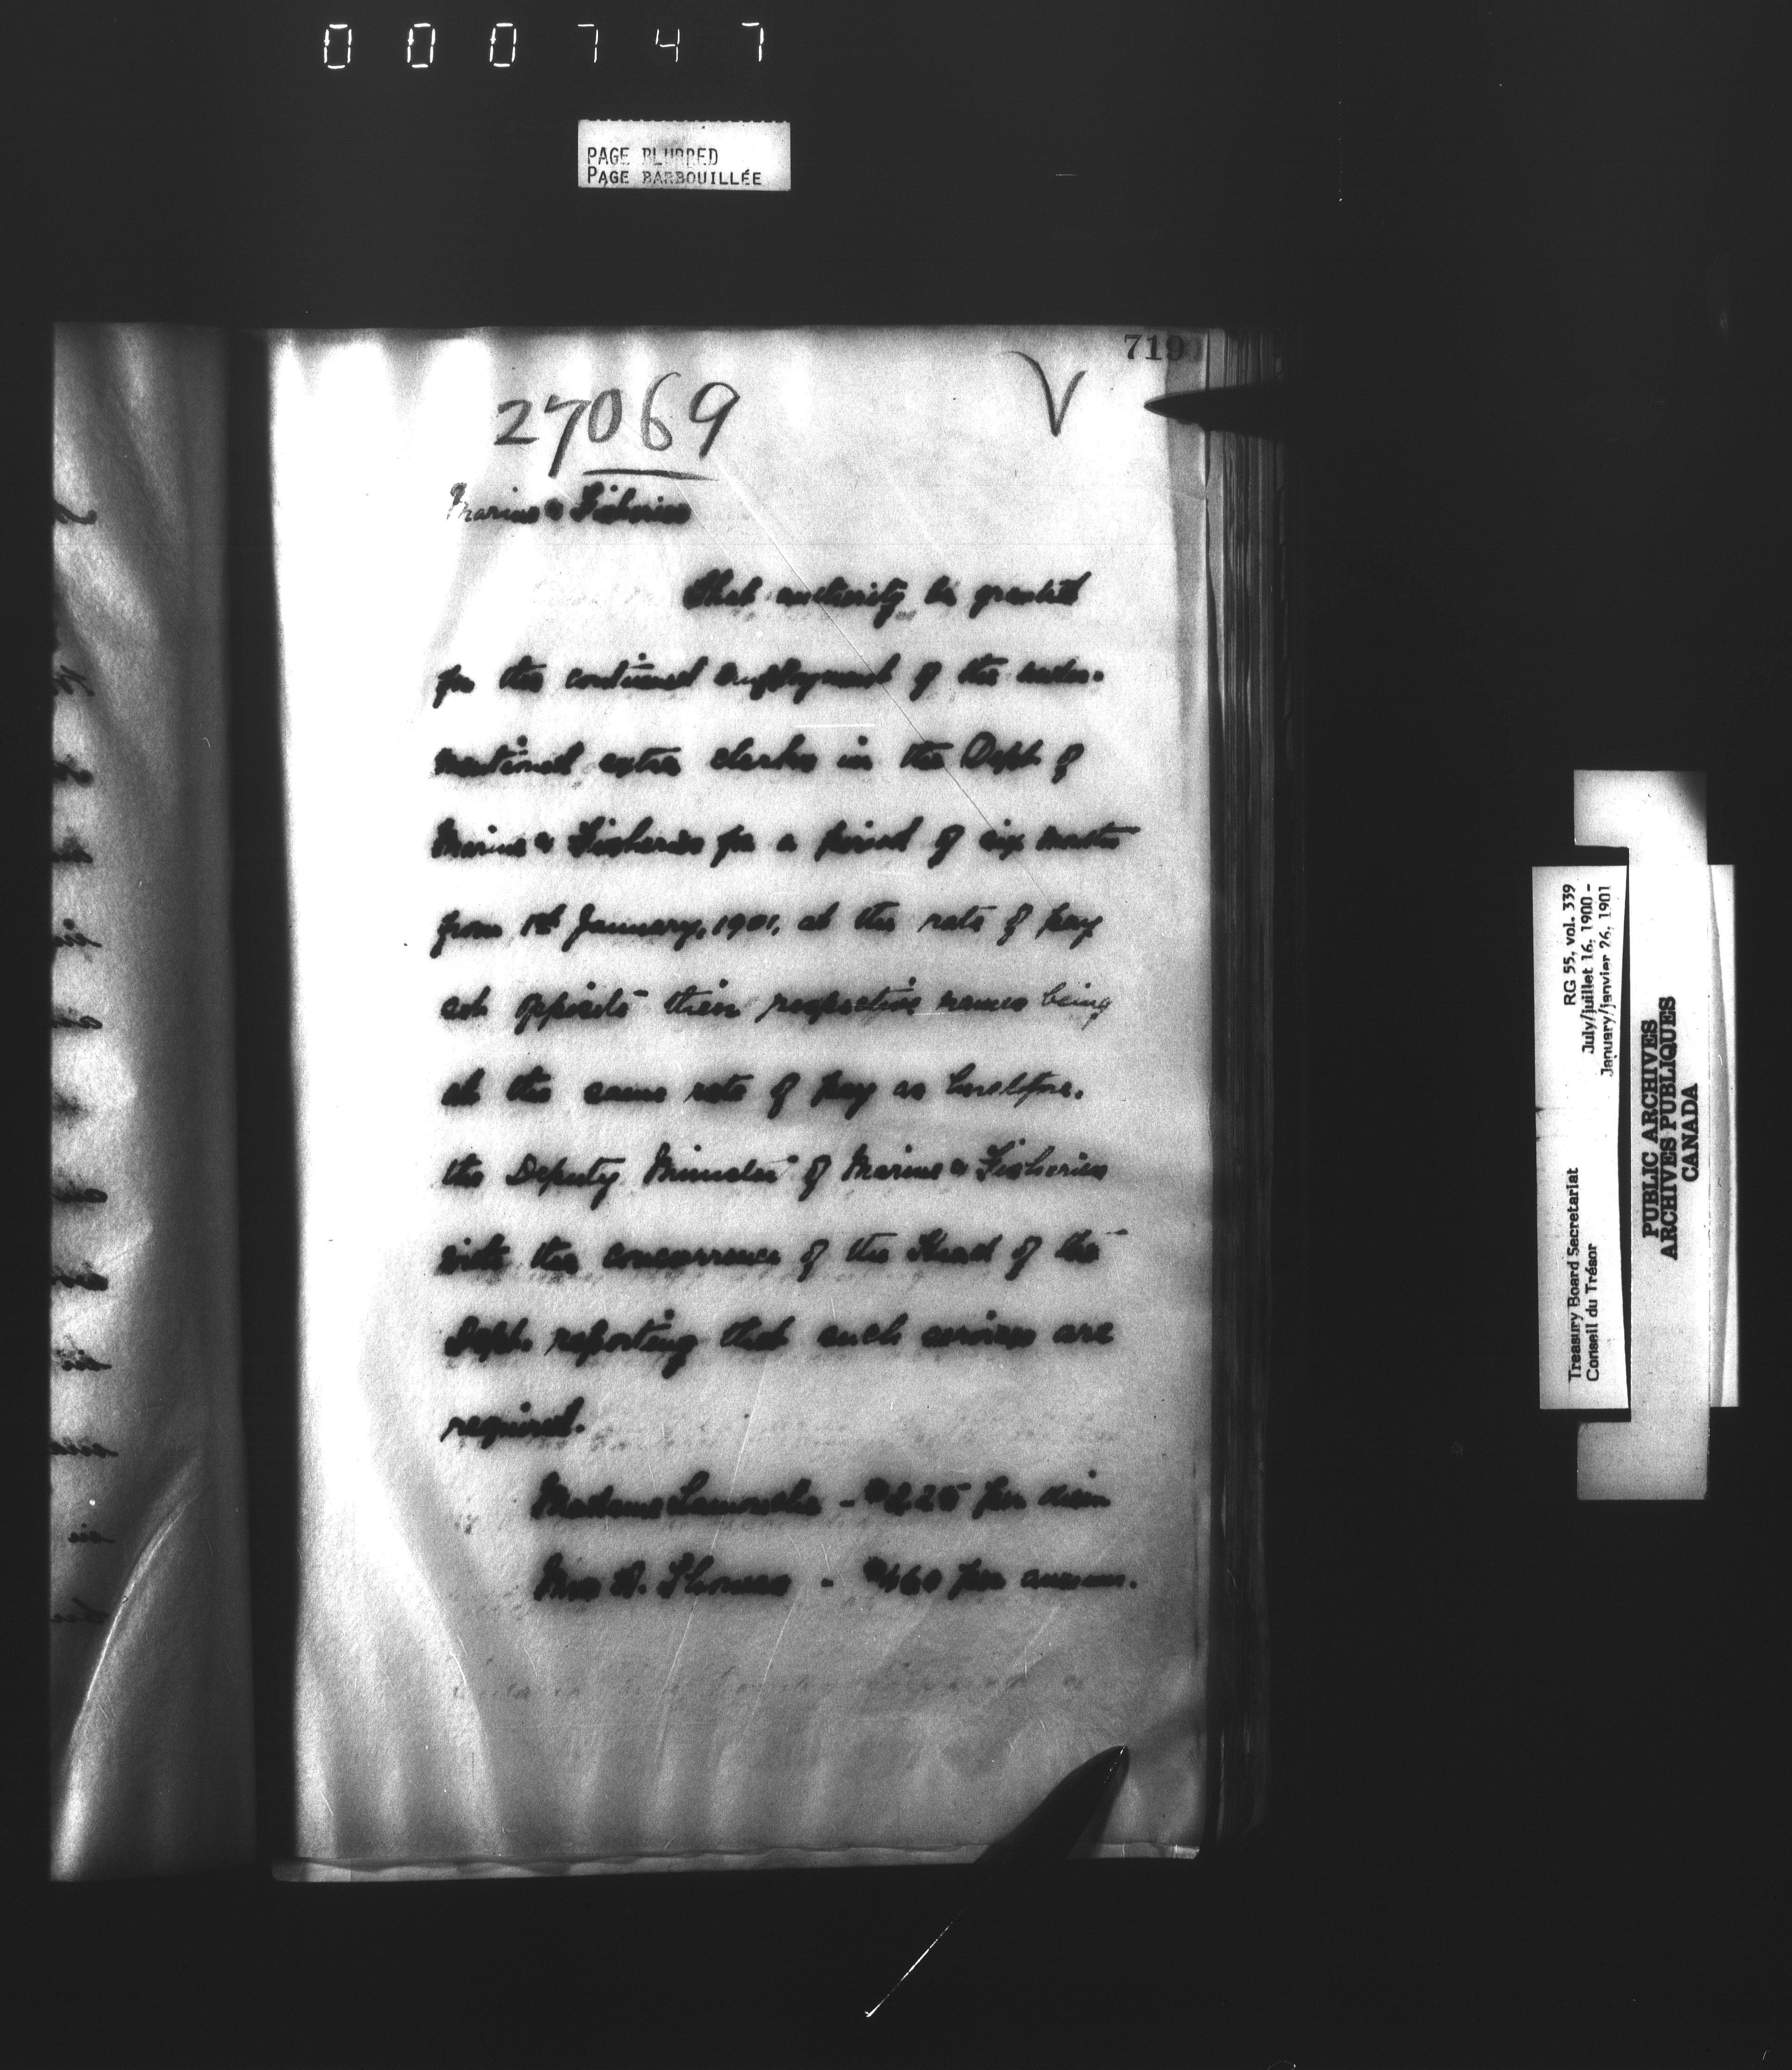 000747
PAGE BLURRED
PAGE BARBOUILLÉE
719
27069
Marine & Fisheries
That authority be granted
for the continued employment of the under-
mentioned extra clerks in the Dept. of
Marine & Fisheries for a period of six months
from 1st January, 1901, at the rate of pay
set opposite their respective names being
at the same rate of pay as heretofore.
the Deputy Minister of Marine & Fisheries
with the concurrence of the Head of the
Dept. reporting that such services are
required.
Madame - $2.25 per diem
A. Thomas - per annum.
RG 55, vol. 339
July/juillet 16, 1900 -
January/janvier 26, 1901
Treasury Board Secretariat
Conseil du Trésor
PUBLIC ARCHIVES
ARCHIVES PUBLIQUES
CANADA